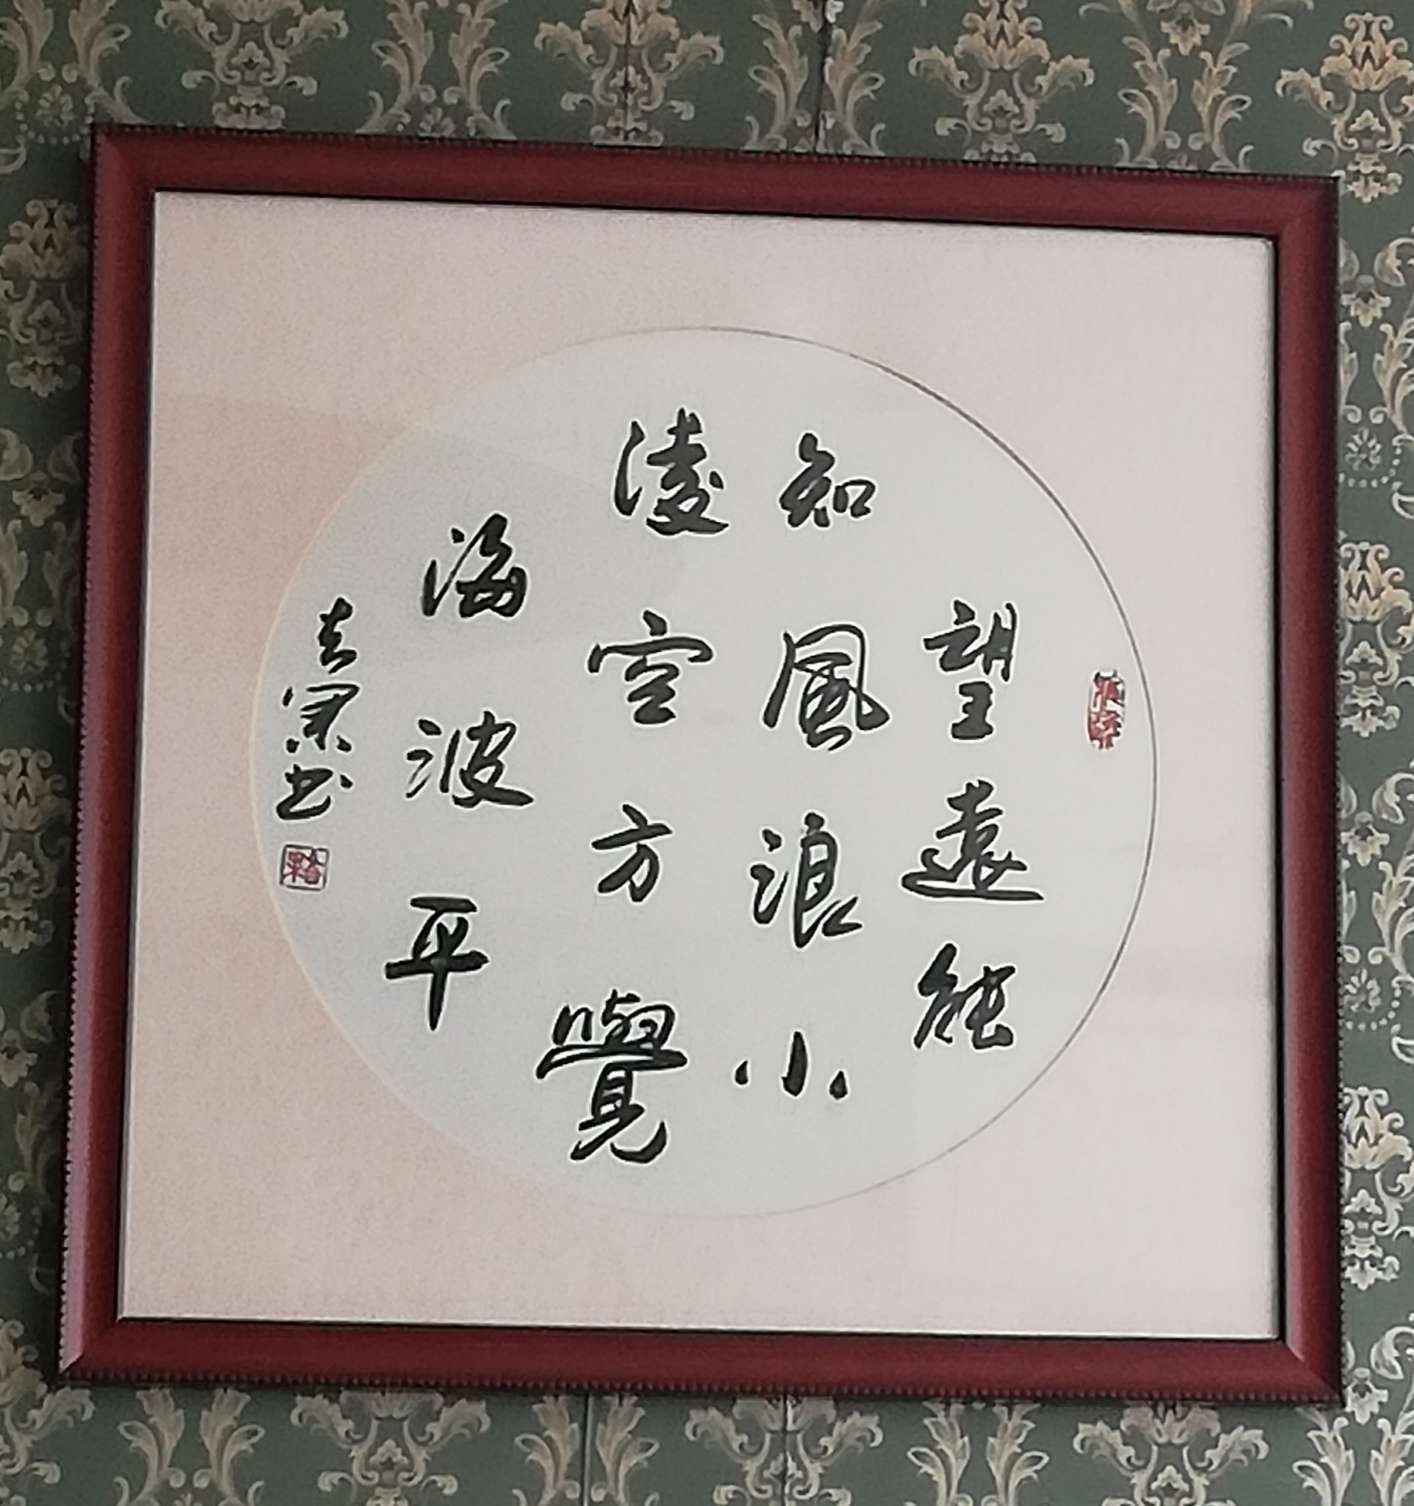 望遠能
知風浪小
凌空方覺
海波平